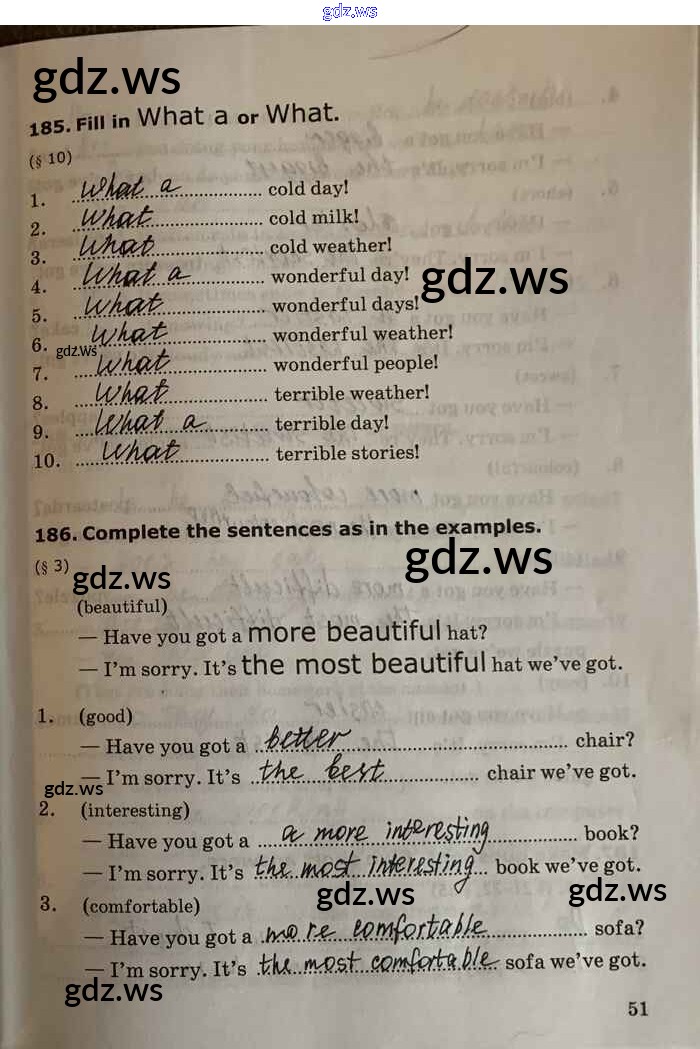 gdz.ws
gdz.ws
185. Fill in What a or What.
(§ 10)
1. What a cold day!
2. What cold milk!
3. What cold weather!
4. What a wonderful day!
gdz.ws
5. What wonderful days!
6. What wonderful weather!
gdz.ws
7. What wonderful people!
8. What terrible weather!
9. What a terrible day!
10. What terrible stories!
186. Complete the sentences as in the examples.
gdz.ws
(§ 3)
gdz.ws
(beautiful)
— Have you got a more beautiful hat?
— I'm sorry. It's the most beautiful hat we've got.
1. (good)
— Have you got a better chair?
— I'm sorry. It's the best chair we've got.
gdz.ws
2. (interesting)
— Have you got a a more interesting book?
— I'm sorry. It's the most interesting book we've got.
gdz.ws
gdz.ws
3. (comfortable)
— Have you got a more comfortable sofa?
— I'm sorry. It's the most comfortable sofa we've got.
gdz.ws
51